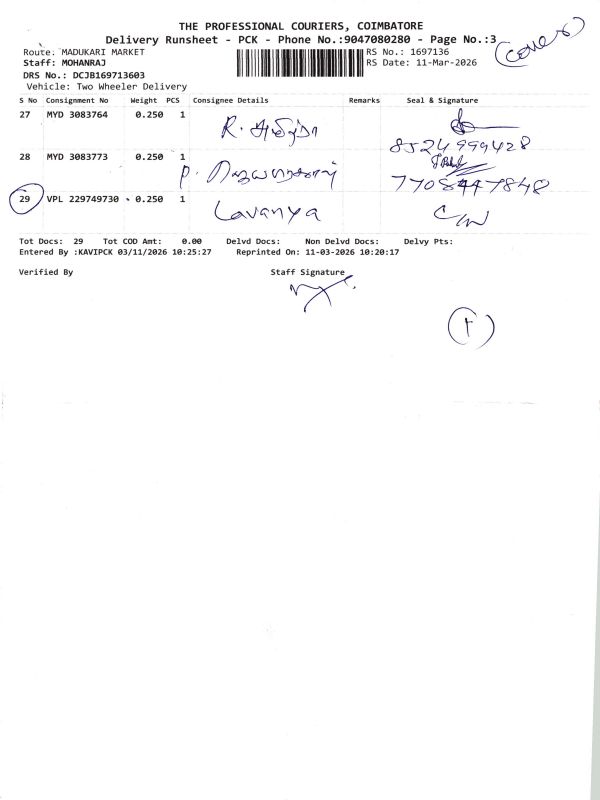 THE PROFESSIONAL COURIERS, COIMBATORE
Delivery Runsheet - PCK - Phone No.:9047080280 - Page No.:3
(Cover)
Route: MADUKARI MARKET RS No.: 1697136
Staff: MOHANRAJ RS Date: 11-Mar-2026
DRS No.: DCJB169713603
Vehicle: Two Wheeler Delivery
S No Consignment No Weight PCS Consignee Details Remarks Seal & Signature
27 MYD 3083764 0.250 1 R.
8524999428
28 MYD 3083773 0.250 1 P.
7708447848
29 VPL 229749730 0.250 1 Lavanya
Tot Docs: 29 Tot COD Amt: 0.00 Delvd Docs: Non Delvd Docs: Delvy Pts:
Entered By :KAVIPCK 03/11/2026 10:25:27 Reprinted On: 11-03-2026 10:20:17
Verified By Staff Signature